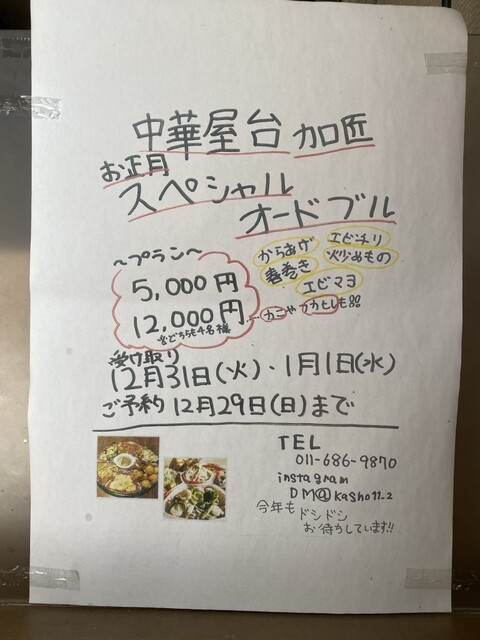 中華屋台 加匠
お正月
スペシャル
オードブル
〜プラン〜
5,000円
12,000円
※どちらも4名様
からあげ
エビチリ
春巻き
炒めもの
エビマヨ
…カニやアワビも!!
受け取り
12月31日(火)・1月1日(水)
ご予約 12月29日(日)まで
TEL
011-686-9870
instagram
DM@kasho11_2
今年も ドシドシ
お待ちしています!!